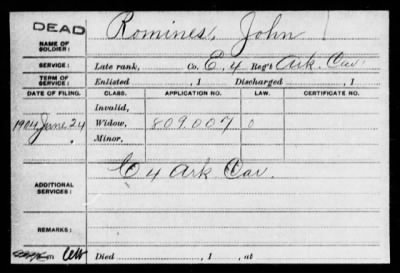 DEAD
NAME OF SOLDIER: Romines, John
SERVICE: Late rank, Co. E. 4 Reg't Ark. Cav.
TERM OF SERVICE: Enlisted , 1 Discharged , 1
DATE OF FILING. CLASS. APPLICATION NO. LAW. CERTIFICATE NO.
Invalid,
1904, June 24 Widow, 809.007 0
Minor,
ADDITIONAL SERVICES: E 4 Ark Cav.
REMARKS:
Died , 1 , at